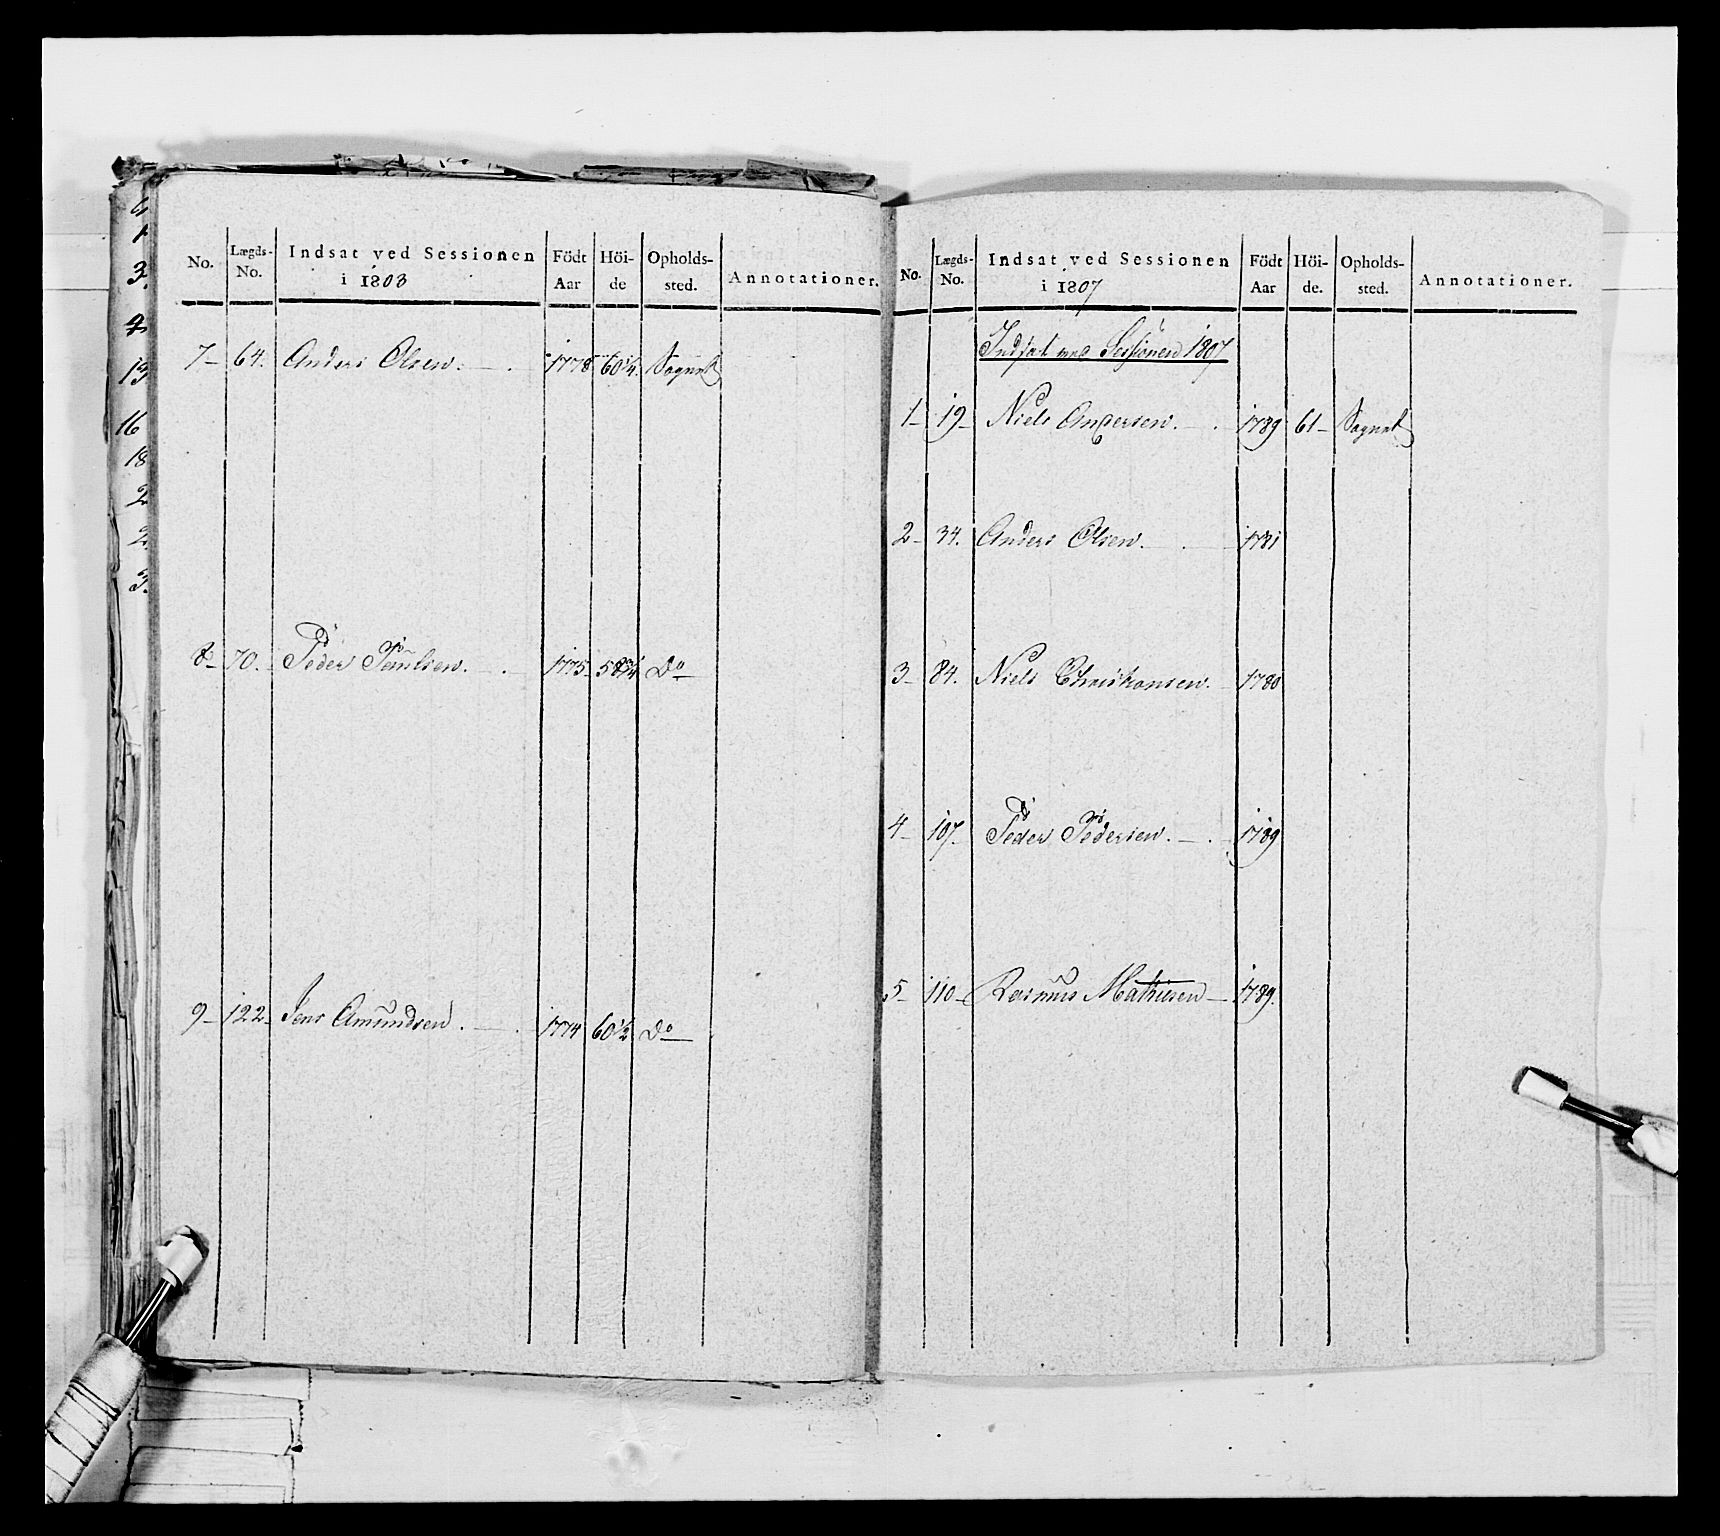 No. Lægds-No. Indsat ved Sessionen i 1803 Födt Aar Höi-de Opholds-sted. Annotationer.
7 - 64. Anders Olsen. 1778 60 1/4. Sognet
8 - 70. Peder 1775 58 3/4 Do
9 - 122 - Jens Amundsen. 1774 60 1/2 Do
No. Lægds-No. Indsat ved Sessionen i 1807 Födt Aar Höi-de. Opholds-sted. Annotationer.
Indsat ved Sessionen 1807
1 - 19 - Niels Andersen. 1789 61 - Sognet
2 - 34. Anders Olsen. 1781
3 - 84. Niels Christiansen. 1780
4 - 107. Peder Pedersen. 1789
5 - 110 - Rasmus Mathiesen - 1789.
6
1
3.
4
13
16
18
2
2
3.